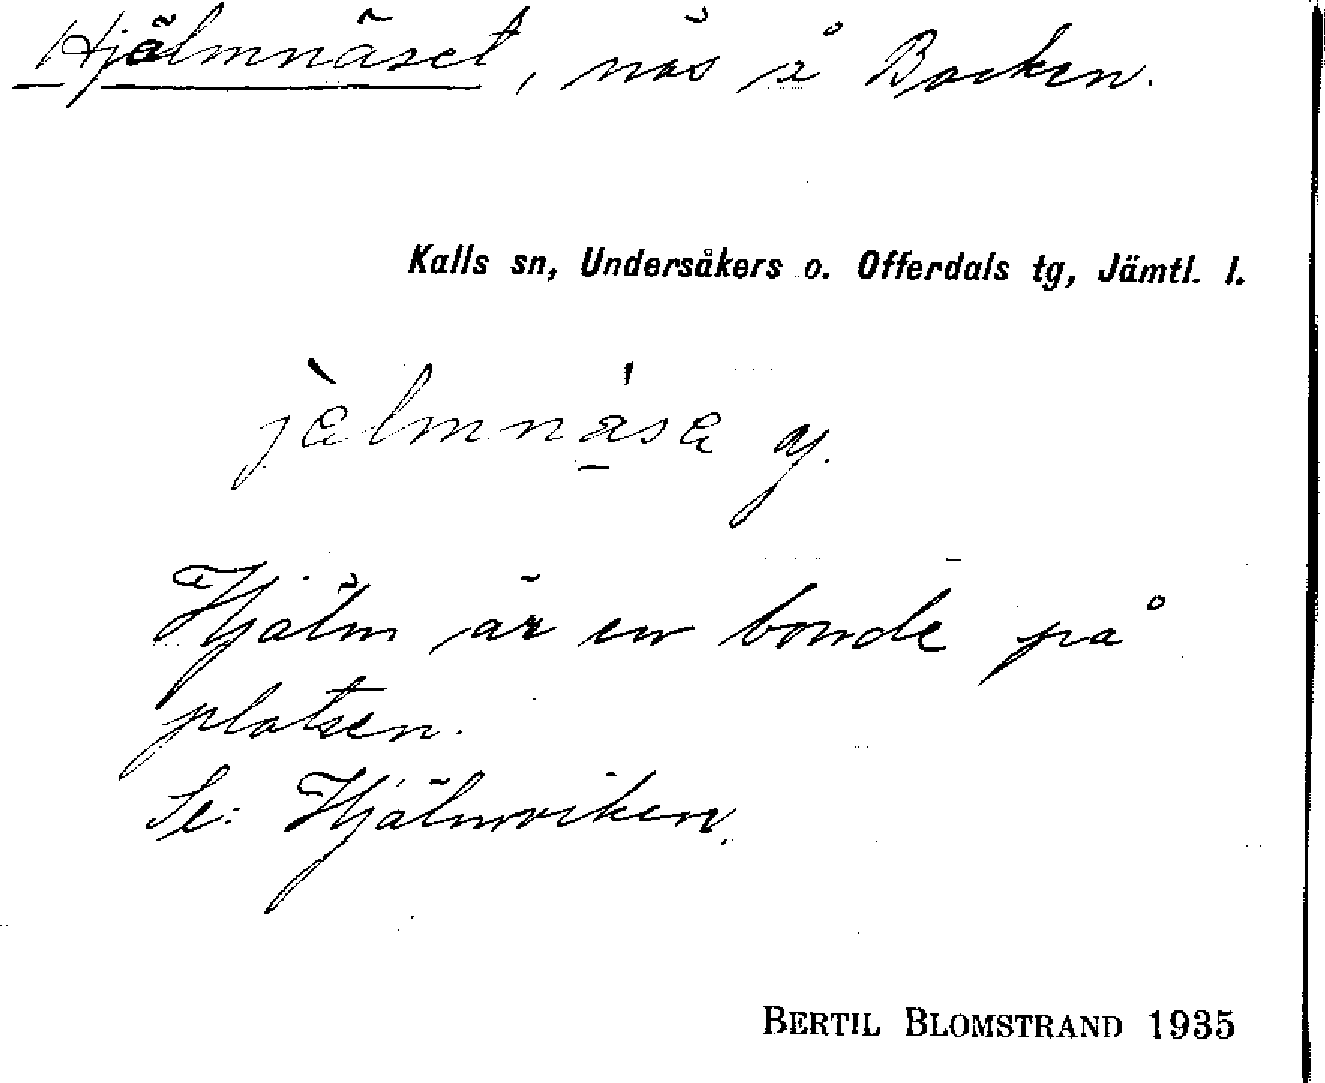 Hjälmnäset, näs i Bocken.
Kalls sn, Undersåkers o. Offerdals tg, Jämtl. l.
Hjälm är en bonde på
platsen.
Se: Hjälmviken.
BERTIL BLOMSTRAND 1935